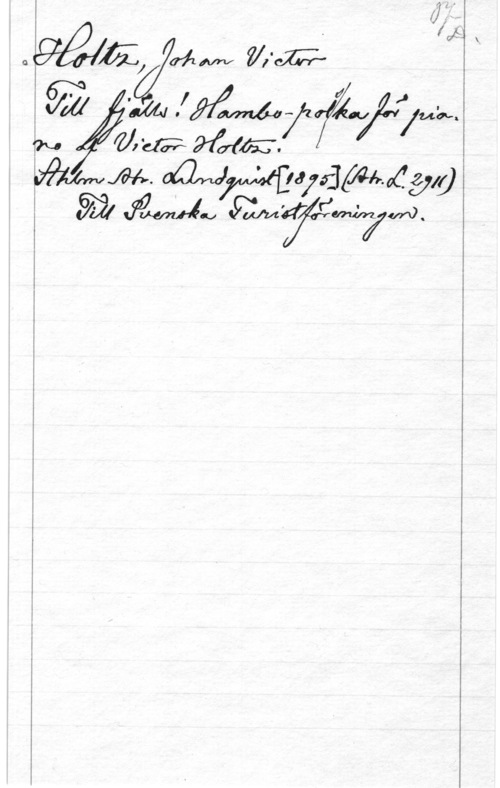 Holtz, Johan Victor
Till fjälls! Hambo-polka för pia-
no af Victor Holtz.
Sthlm Abr. Lundquist [1895] (Abr. L. 2911)
Till Svenska Turistföreningen.